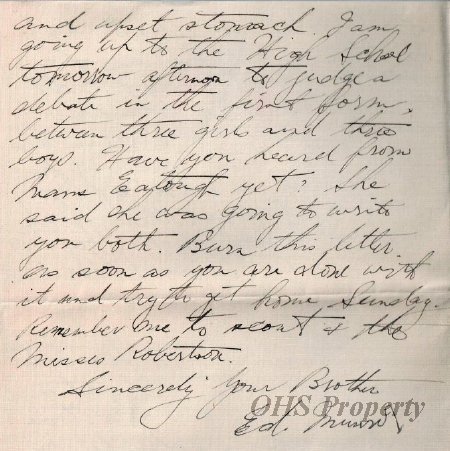 and upset stomach. I am
going up to the High School
tomorrow afternoon to judge a
debate in the first form,
between three girls and three
boys. Have you heard from
Mams yet? She
said she was going to write
you both. Burn this letter
as soon as you are done with
it and try to get home Sunday.
Remember me to & the
Misses Robertson.
Sincerely Your Brother
Ed.
OHS Property